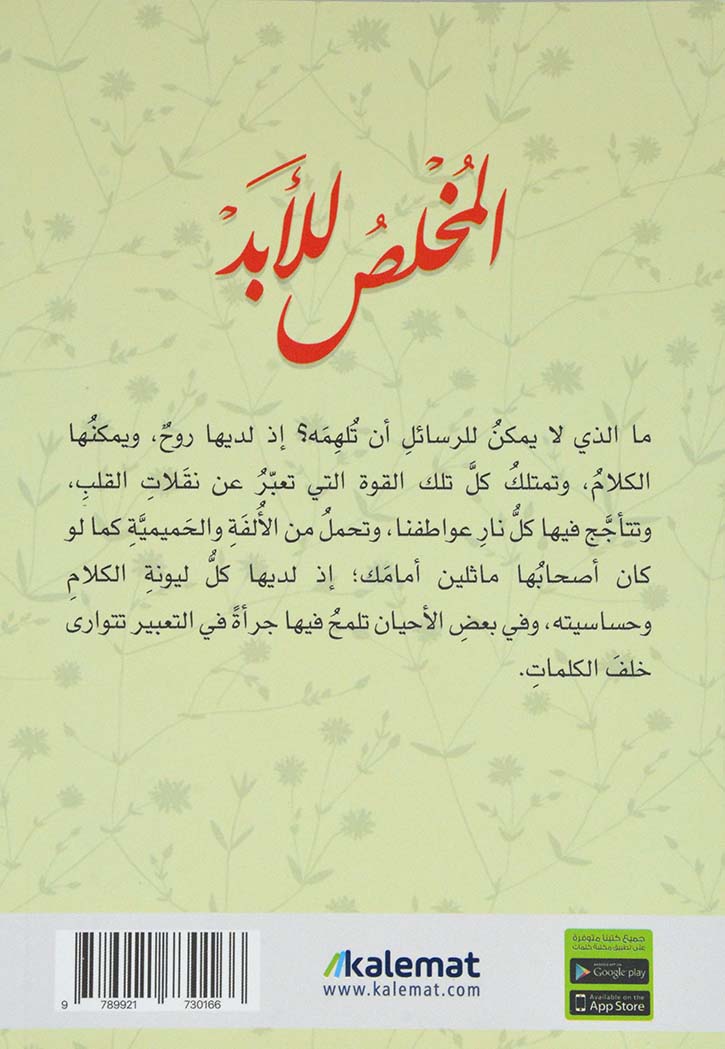 المُخْلصُ للأبَدْ
ما الذي لا يمكنُ للرسائلِ أن تُلهِمَه؟ إذ لديها روحٌ، ويمكنُها
الكلامُ، وتمتلكُ كلَّ تلك القوة التي تعبّرُ عن نقَلاتِ القلبِ،
وتتأجَّج فيها كلُّ نارِ عواطفنا، وتحملُ من الأُلفَةِ والحَميميَّةِ كما لو
كان أصحابُها ماثلين أمامَك؛ إذ لديها كلُّ ليونةِ الكلامِ
وحساسيته، وفي بعضِ الأحيان تلمحُ فيها جرأةً في التعبير تتوارى
خلفَ الكلماتِ.
جميع كتبنا متوفرة
على تطبيق مكتبة كلمات
ANDROID APP ON
Google play
Available on the
App Store
kalemat
www.kalemat.com
9 789921 730166